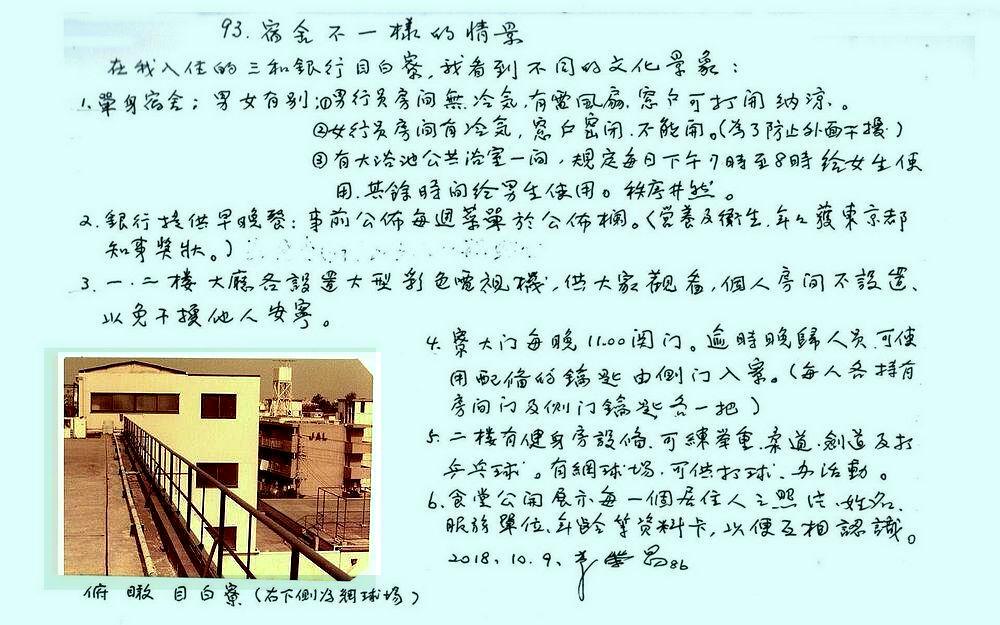 93. 宿舍不一樣的情景
在我入住的三和銀行目白寮,我看到不同的文化景象:
1.單身宿舍:男女有別:①男行員房間無冷気,有電風扇.窓户可打開納凉。
②女行員房間有冷気,窓户密閉.不能開。(為了防止外面干擾)
③有大浴池公共浴室一间,規定每日下午7時至8時给女生使
用.其餘時间给男生使用。秩序井然。
2.銀行提供早晚餐:事前公佈每週菜單於公佈欄。(営養及衛生.年々獲東京都
知事奬狀。)
3.一.二楼大廳各設置大型彩色電視機,供大家觀看,個人房间不設置、
以免干擾他人安寧。
4.寮大门每晚11.00関门。逾時晚歸人員.可使
用配備的鑰匙由側门入寮。(每人各持有
房间门及側门鑰匙各一把)
5.二楼有健身房設備.可練举重.柔道.劍道及打
乒乓球。有網球場.可供打球、办活動。
6.食堂公開展示每一個居住人之照片.姓名.
服務單位、年龄等资料卡,以便互相認識。
2018.10.9、
86
JAL
俯瞰目白寮(右下側为網球場)